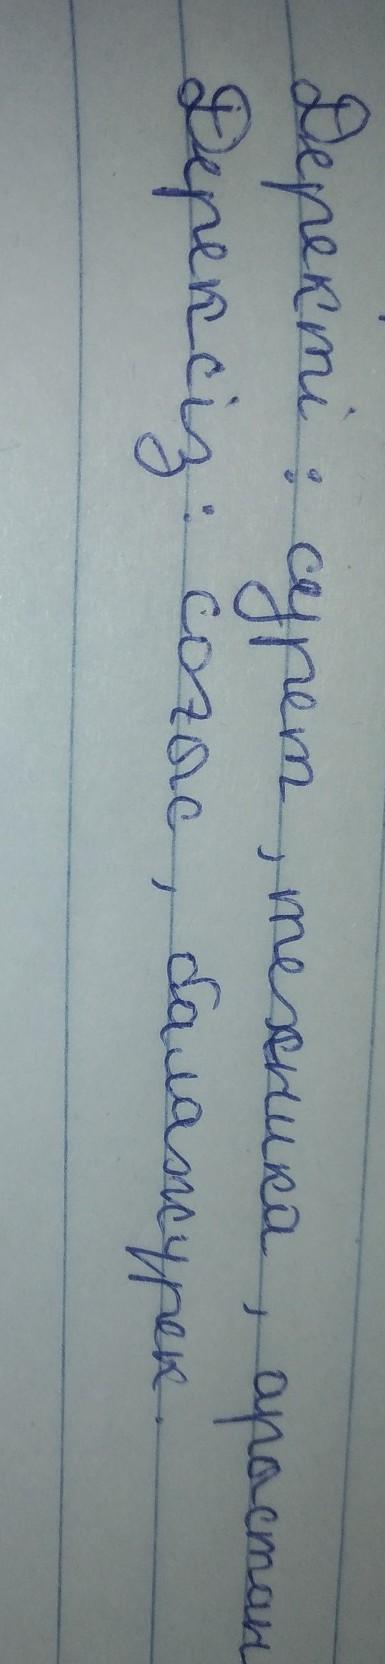 Деректі: сурет, техника, арыстан
Дерексіз: соғыс, балажүрек.